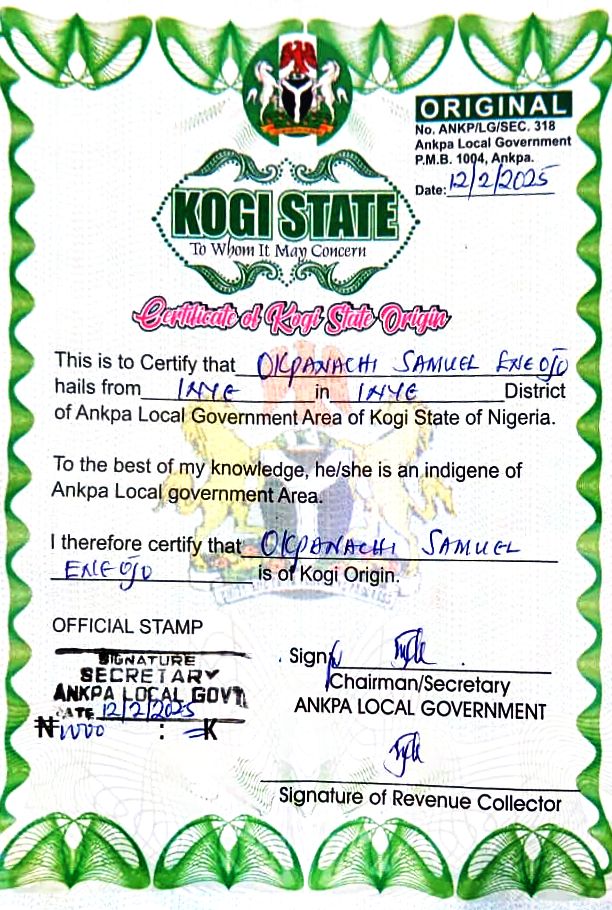 ORIGINAL
No. ANKP/LG/SEC. 318
Ankpa Local Government
P.M.B. 1004, Ankpa.
Date: 12/2/2025
KOGI STATE
To Whom It May Concern
Certificate of Kogi State Origin
This is to Certify that OKPANACHI SAMUEL ENEOJO
hails from INYE in INYE District
of Ankpa Local Government Area of Kogi State of Nigeria.
To the best of my knowledge, he/she is an indigene of
Ankpa Local government Area.
I therefore certify that OKPANACHI SAMUEL
ENEOJO is of Kogi Origin.
OFFICIAL STAMP
SIGNATURE
SECRETARY
ANKPA LOCAL GOVT.
DATE 12/2/2025
₦ 1000 : = K
Sign
Chairman/Secretary
ANKPA LOCAL GOVERNMENT
Signature of Revenue Collector